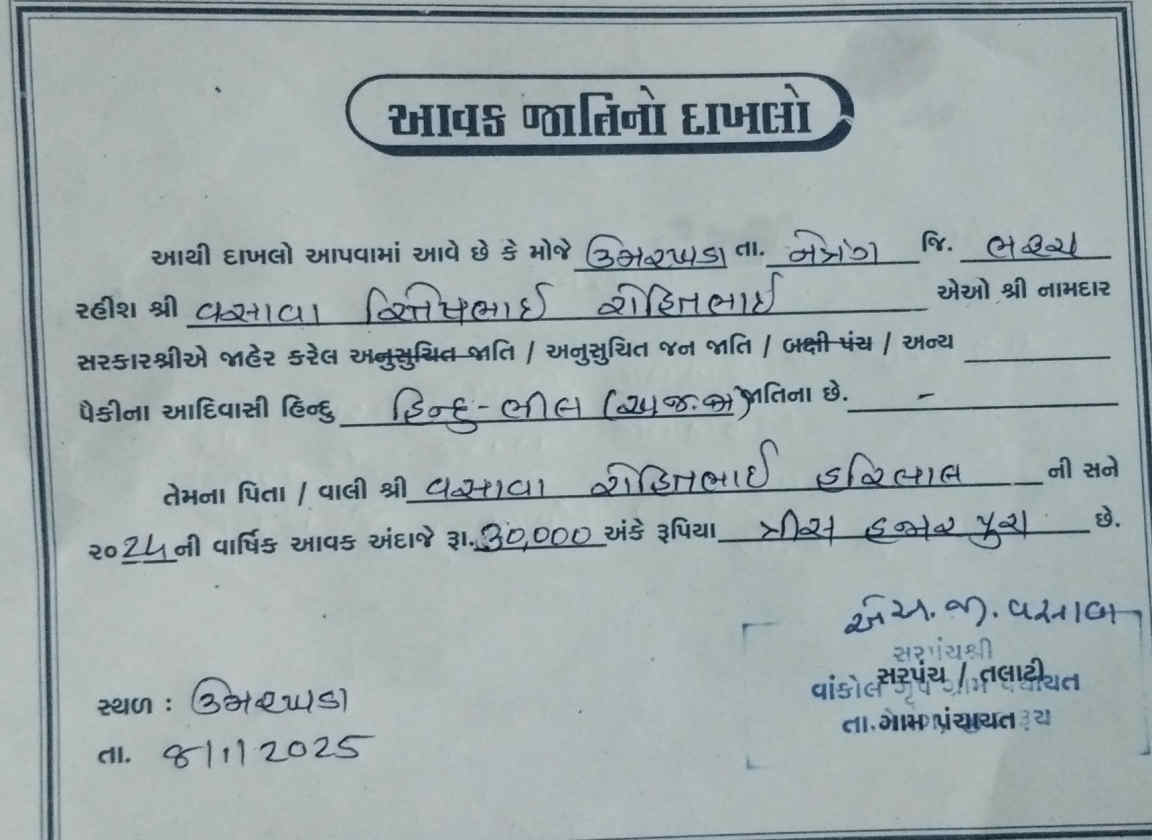 આવક જાતિનો દાખલો
આથી દાખલો આપવામાં આવે છે કે મોજે ઉમરખડા તા. નેત્રંગ જિ. ભરૂચ
રહીશ શ્રી વસાવા દિલીપભાઈ રોહિતભાઈ એઓ શ્રી નામદાર
સરકારશ્રીએ જાહેર કરેલ અનુસુચિત જાતિ / અનુસુચિત જન જાતિ / બક્ષી પંચ / અન્ય
પૈકીના આદિવાસી હિન્દુ હિન્દુ - ભીલ (અ.જ.જા) જાતિના છે. -
તેમના પિતા / વાલી શ્રી વસાવા રોહિતભાઈ હરિલાલ ની સને
૨૦24 ની વાર્ષિક આવક અંદાજે રૂા. 30,000 અંકે રૂપિયા ત્રીસ હજાર પુરા છે.
એસ. જી. વસાવા
સરપંચશ્રી
સરપંચ / તલાટી
વાંકોલ ગૃપ ગ્રામ પંચાયત
તા. ગ્રામ પંચાયત
સ્થળ : ઉમરખડા
તા. 8/1/2025